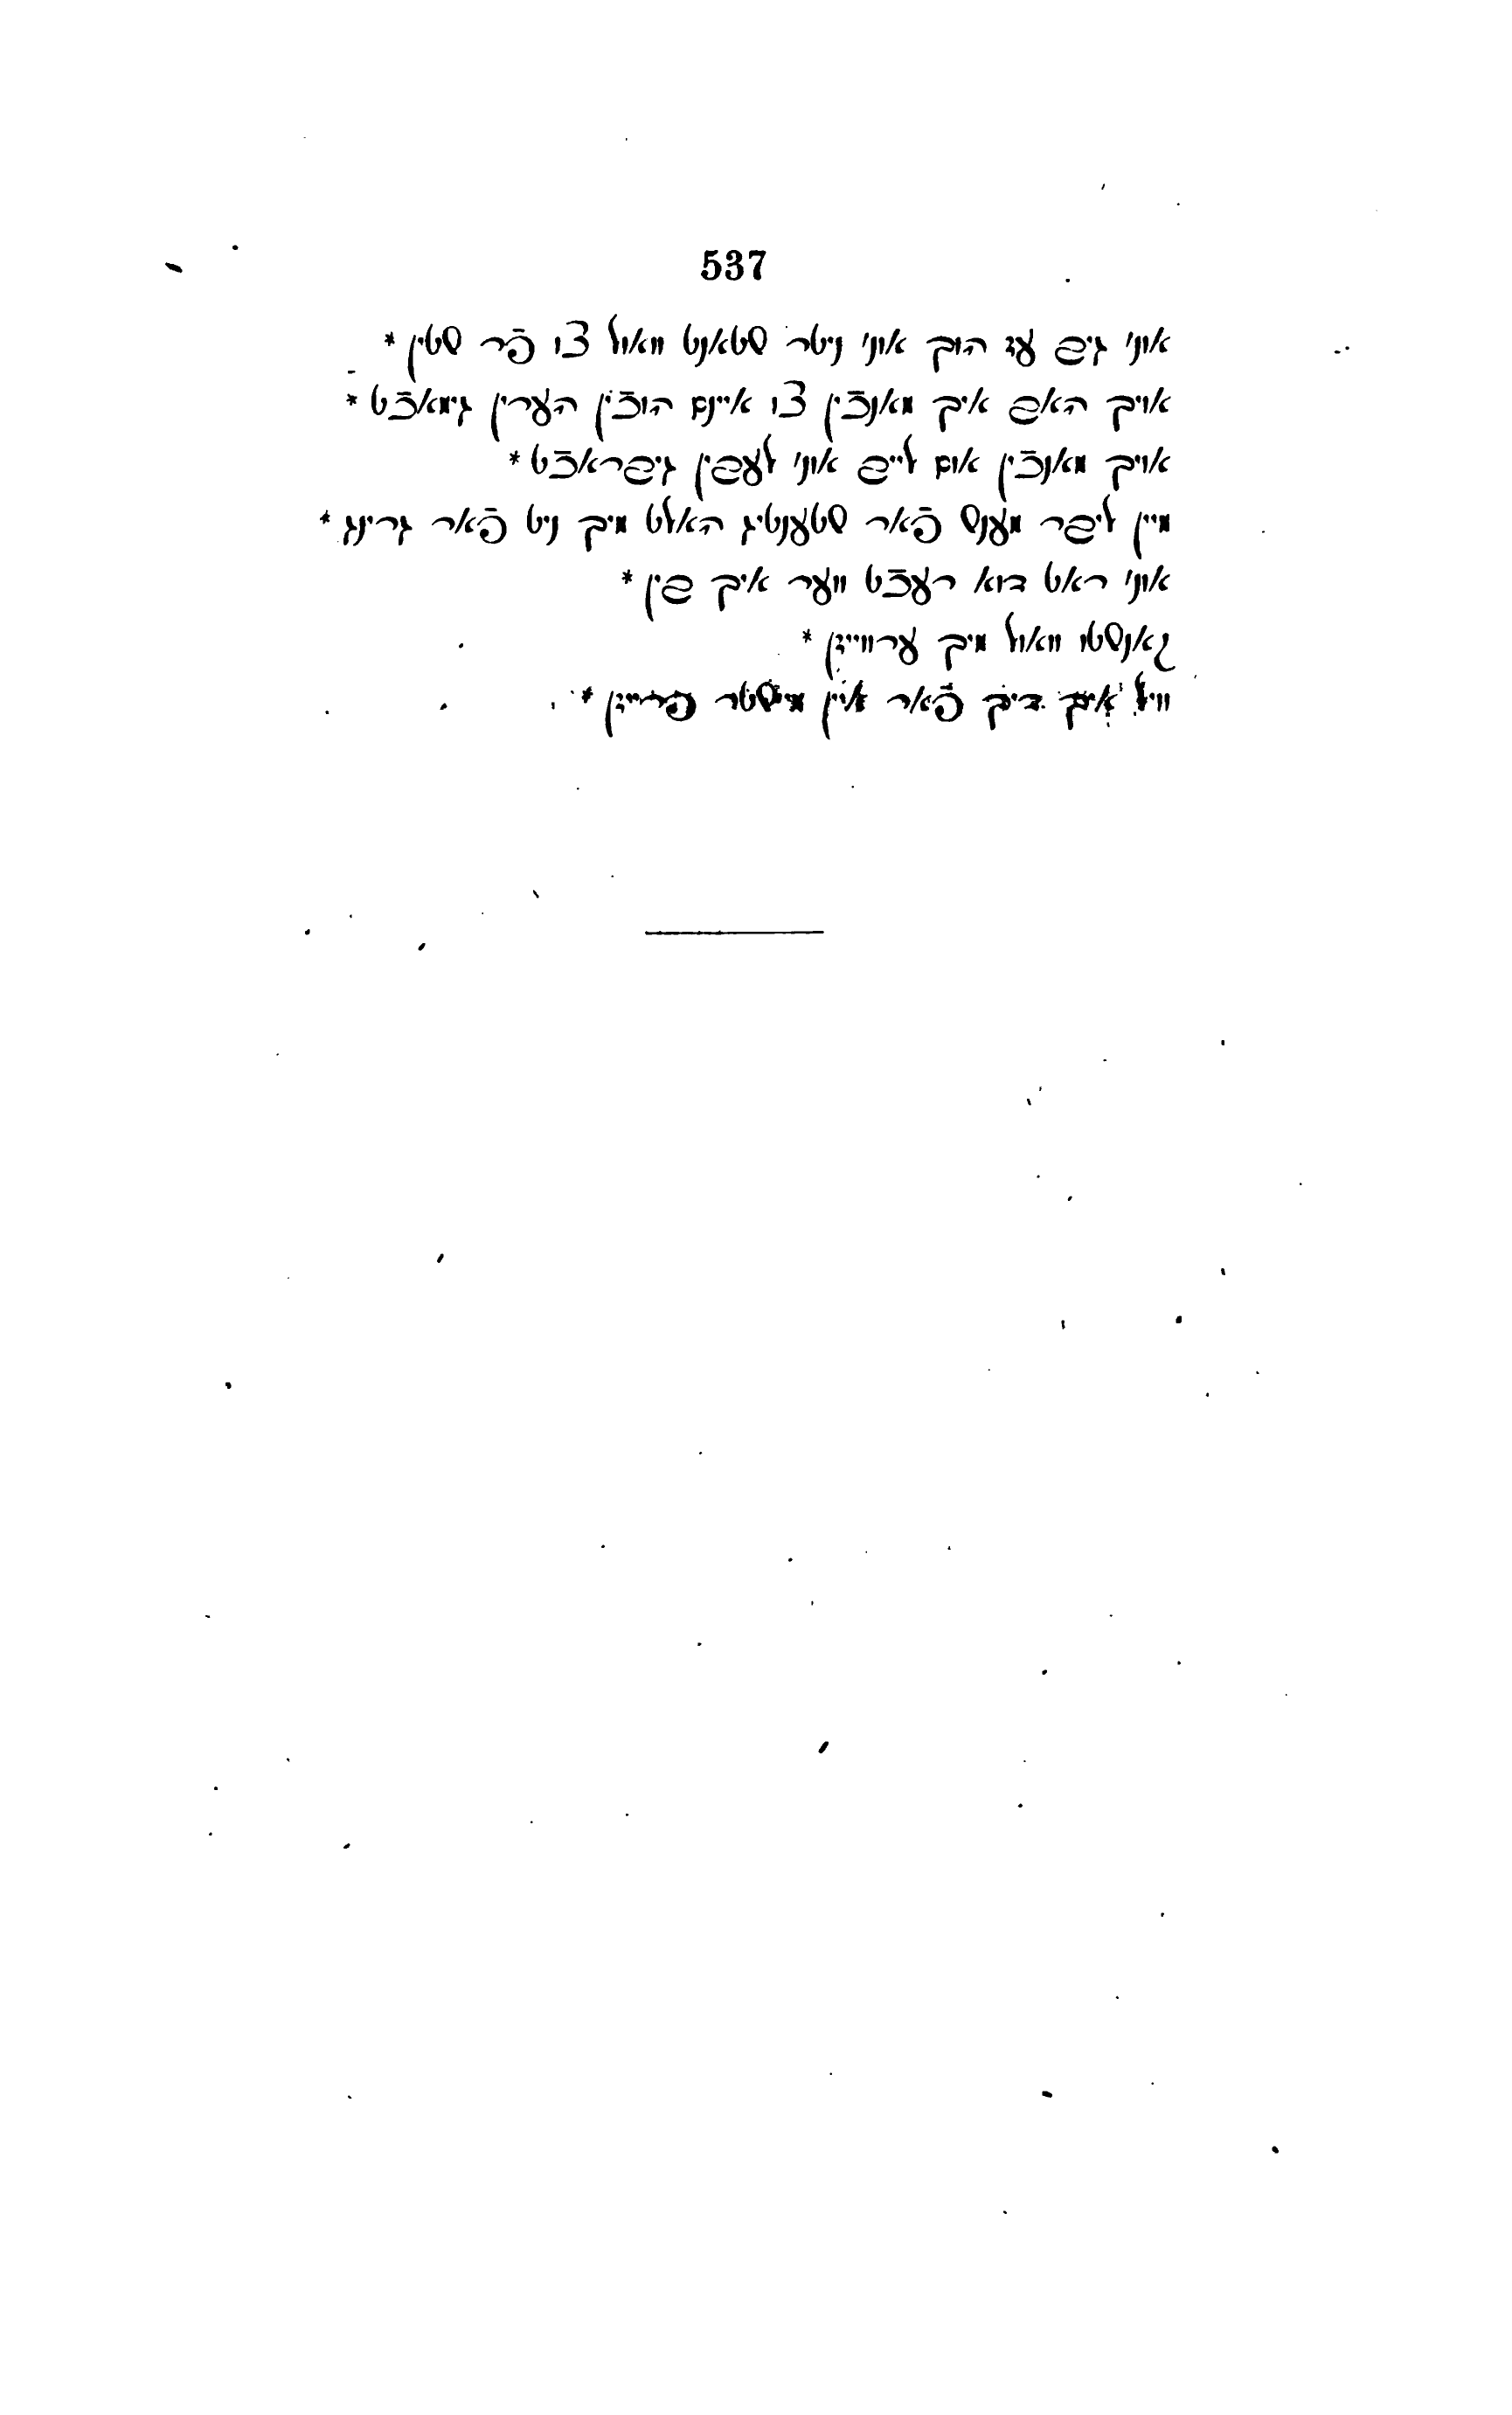 537
אונ׳ גיב עז הוך אונ׳ ניטר סטאנט וואול צו פֿר סטין *
אויך האב איך מאנכֿין צו איינם הוכֿין הערין גימאכֿט *
אויך מאנכֿין אום לייב אונ׳ לעבין גיבראכֿט *
מיין ליבר מענס פֿאר סטענטיג האלט מיך ניט פֿאר גרינג *
אונ׳ ראט דוא רעכֿט ווער איך בין *
קאנסטו וואול מיך ערווייזן *
וויל איך דיך פֿאר איין מייסטר פרייזן *